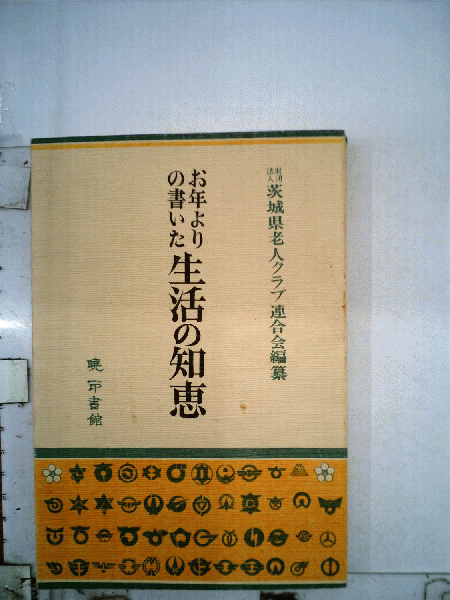 財団法人 茨城県老人クラブ連合会編纂
お年より
の書いた
生活の知恵
暁印書館